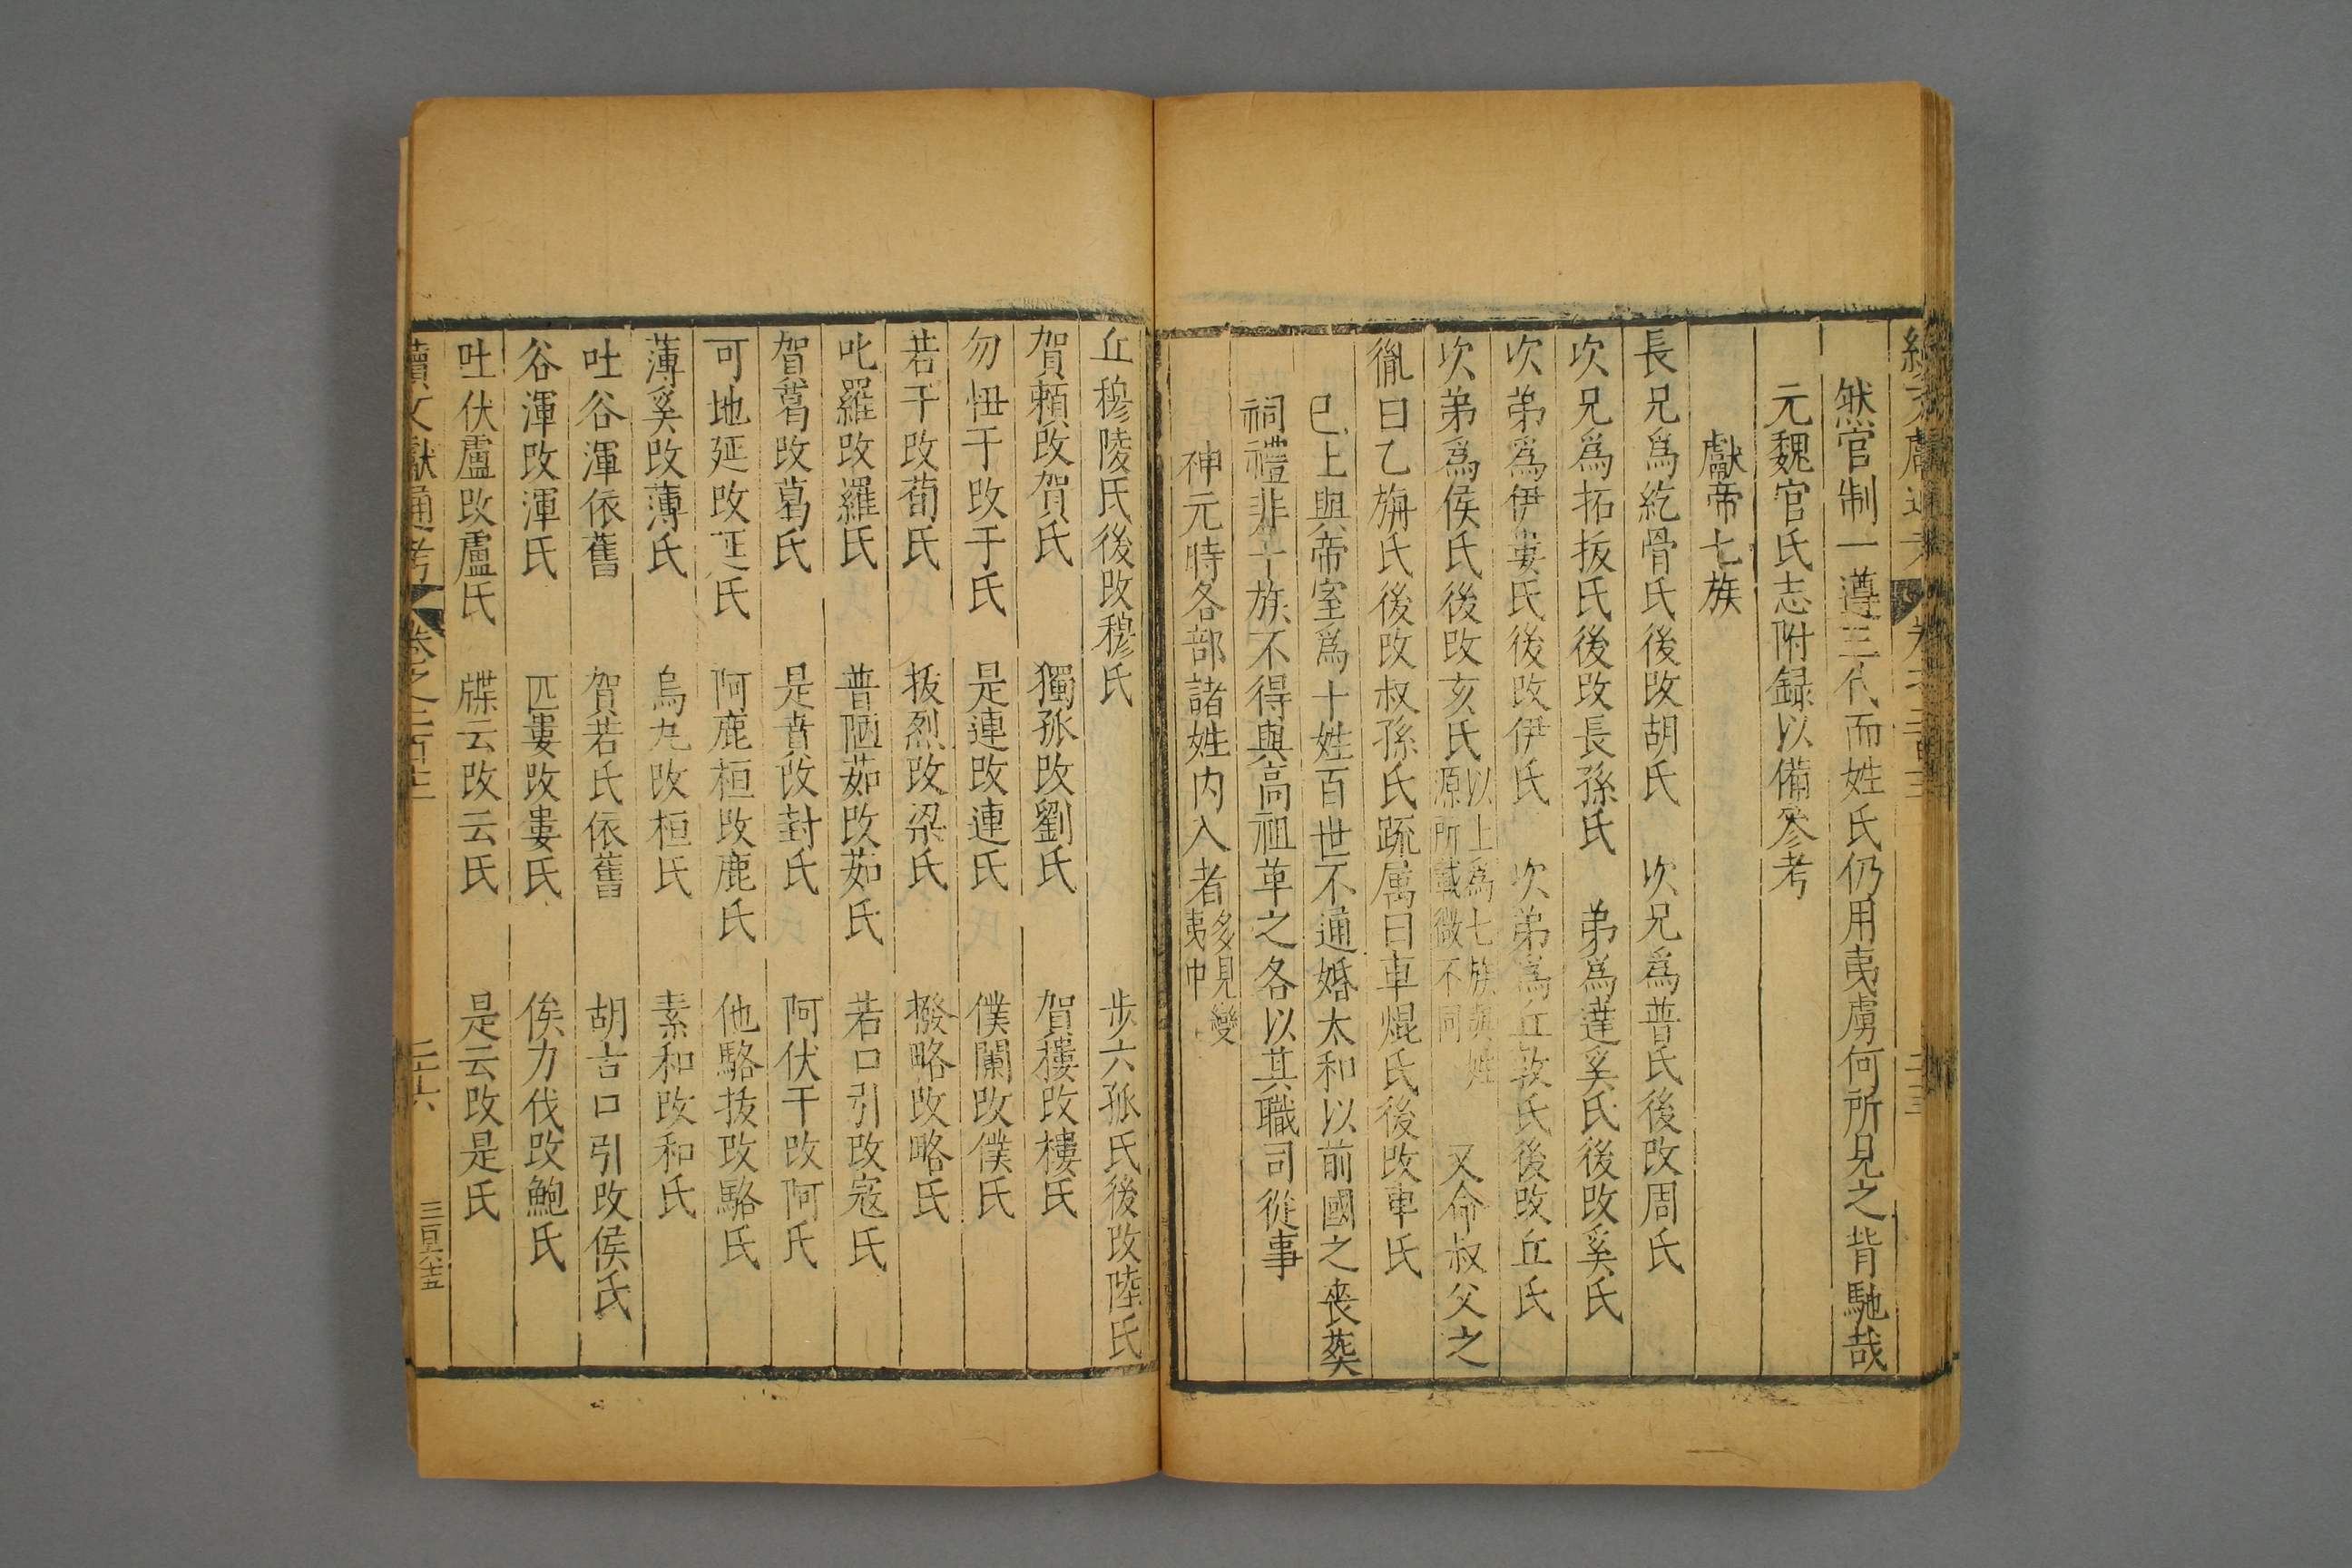 然官制一遵三代而姓氏仍用夷虜何所見之背馳哉
元魏官氏志附録以備參考
獻帝七族
長兄爲紇骨氏後改胡氏　次兄爲普氏後改周氏
次兄爲拓拔氏後改長孫氏　弟爲達奚氏後改奚氏
次弟爲伊婁氏後改伊氏　次弟爲丘敦氏後改丘氏
次弟爲侯氏後改亥氏　以上爲七族與姓源所載微不同　又命叔父之
胤曰乙旃氏後改叔孫氏疏属曰車焜氏後改車氏
已上與帝室爲十姓百世不通婚太和以前國之丧葬
祠禮非十族不得與高祖革之各以其職司從事
神元時各部諸姓内入者多見變夷中
丘穆陵氏後改穆氏　步六孤氏後改陸氏
賀頼改賀氏　獨孤改劉氏　賀樓改樓氏
勿忸于改于氏　是連改連氏　僕闌改僕氏
若干改荀氏　拔烈改梁氏　撥略改略氏
叱羅改羅氏　普陋茹改茹氏　若口引改寇氏
賀葛改葛氏　是賁改封氏　阿伏干改阿氏
可地延改延氏　阿鹿桓改鹿氏　他駱拔改駱氏
薄奚改薄氏　烏丸改桓氏　素和改和氏
吐谷渾依舊　賀若氏依舊　胡古口引改侯氏
谷渾改渾氏　匹婁改婁氏　俟力伐改鮑氏
吐伏盧改盧氏　牒云改云氏　是云改是氏
續文獻通考　卷之二百 二十六